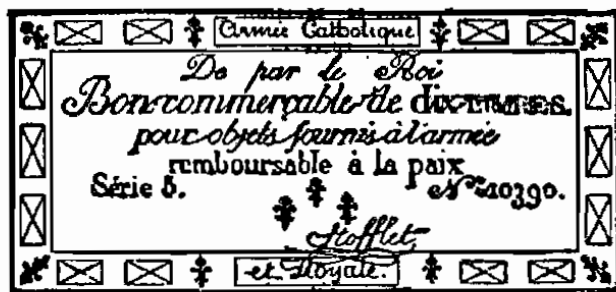 Armée Catholique
De par le Roi
Bon commerçable de DIX LIVRES.
pour objets fournis à l'armée
remboursable à la paix
Série 5. N.º 10390.
Stofflet
et Royale.